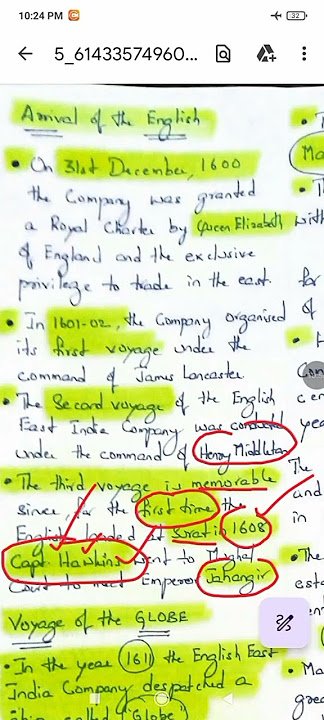 10:24 PM
32
5_61433574960...
Arrival of the English
• On 31st December, 1600
the Company was granted
a Royal Charter by Queen Elizabeth
of England and the exclusive
privilege to trade in the east.
• In 1601-02, the Company organised
its first voyage under the
command of James Lancaster
• The Second voyage of the English
East India Company was conducted
under the command of Henry Middleton
• The third voyage is memorable
since, for the first time the
English landed at Surat in 1608
Capt. Hawkins went to Mughal
Court to meet Emperor Jahangir
Voyage of the GLOBE
• In the year 1611 the English East
India Company despatched a
ship called ("Globe")
Ma
with
for
of
• H
Con
cen
yea
The
and
in
• The
esta
• Ma
grea